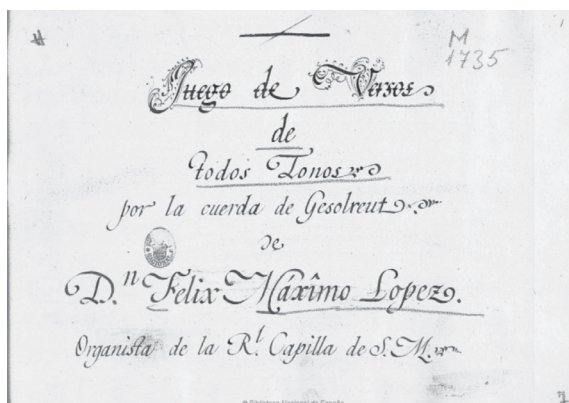 M
1735
Juego de Versos
de
todos Tonos
por la cuerda de Gesolreut
de
D.ⁿ Felix Máxîmo Lopez.
Organista de la R.ˡ Capilla de S. M.
Biblioteca Nacional de España